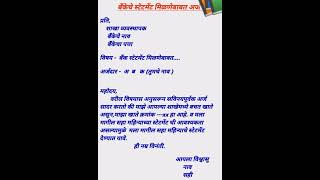 बँकेचे स्टेटमेंट मिळणेबाबत अर्ज
प्रति,
शाखा व्यवस्थापक
बँकेचे नाव
बँकेचा पत्ता
विषय - बँक स्टेटमेंट मिळणेबाबत....
अर्जदार - अ ब क (तुमचे नाव )
महोदय,
वरील विषयास अनुसरून सविनयपूर्वक अर्ज
सादर करतो की माझे आपल्या शाखेमध्ये बचत खाते
असून,माझा खाते क्रमांक ---xx हा आहे. व मला
मागील सहा महिन्याच्या स्टेटमेंट ची आवश्यकता
असल्यामुळे मला मागील सहा महिन्याचे स्टेटमेंट
देण्यात यावे.
ही नम्र विनंती.
आपला विश्वासू
नाव
सही